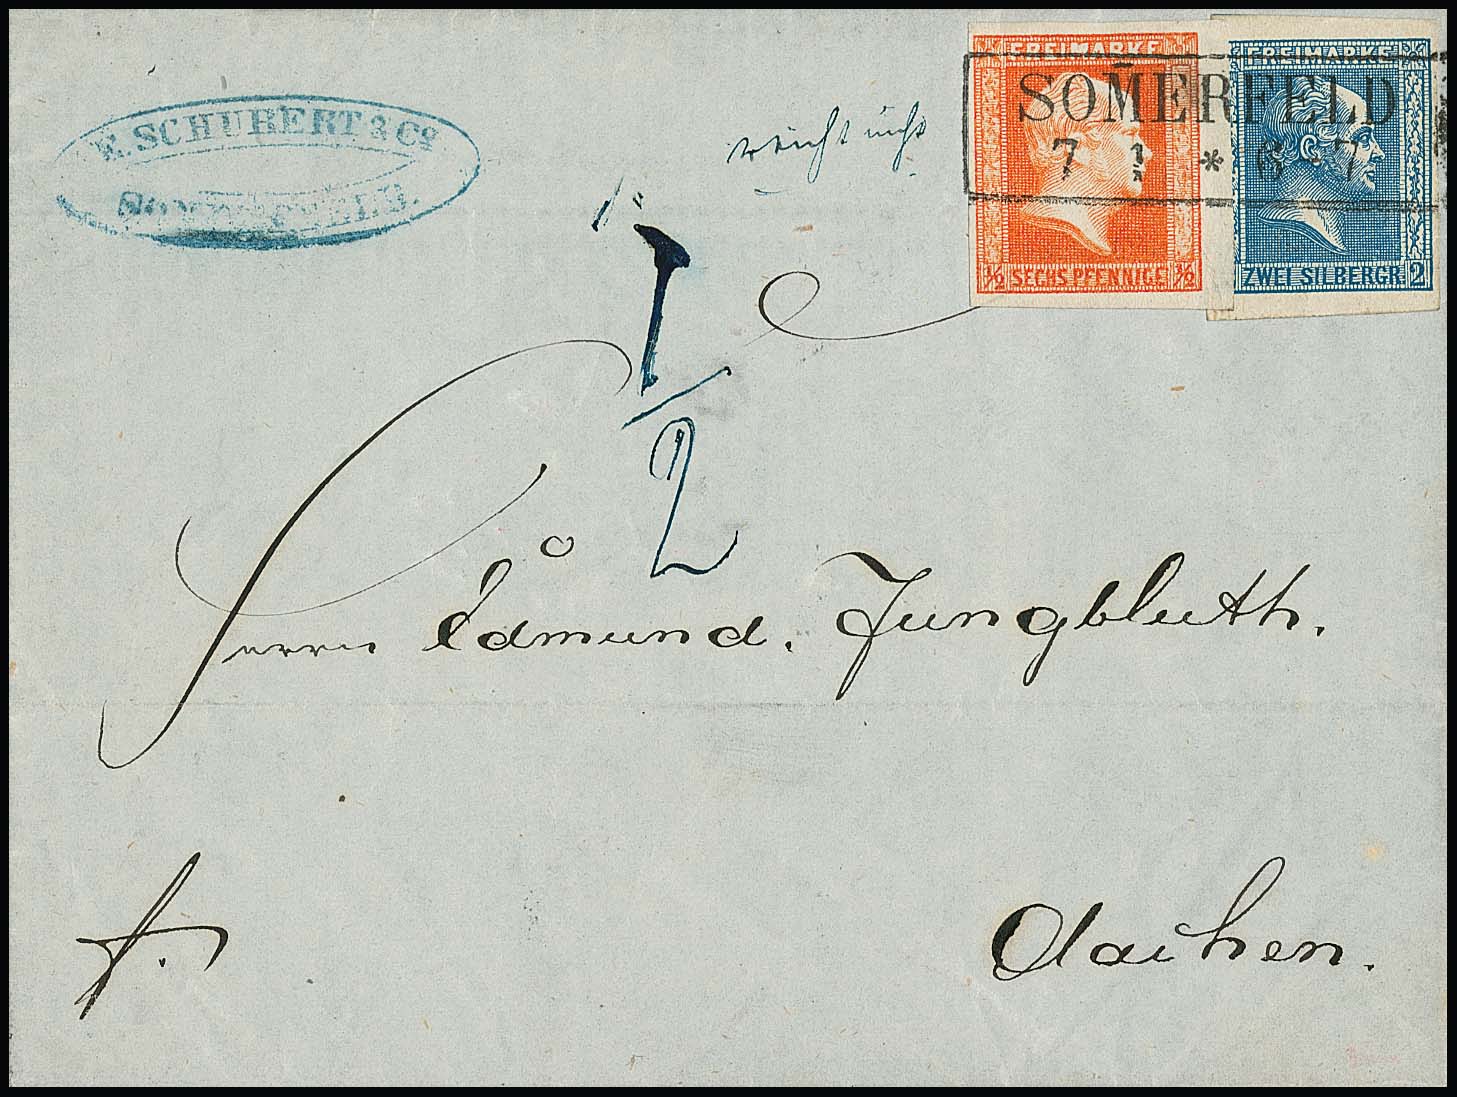 FREIMARKE
FREIMARKE
SOM̄ERFELD
7 1 * 6-7
½ SECHS PFENNIGE ½
ZWEI SILBERGR. 2
E. SCHUBERT & Co
reicht nicht
1/2
Herrn Edmund. Jungbluth.
fr.
Aachen.